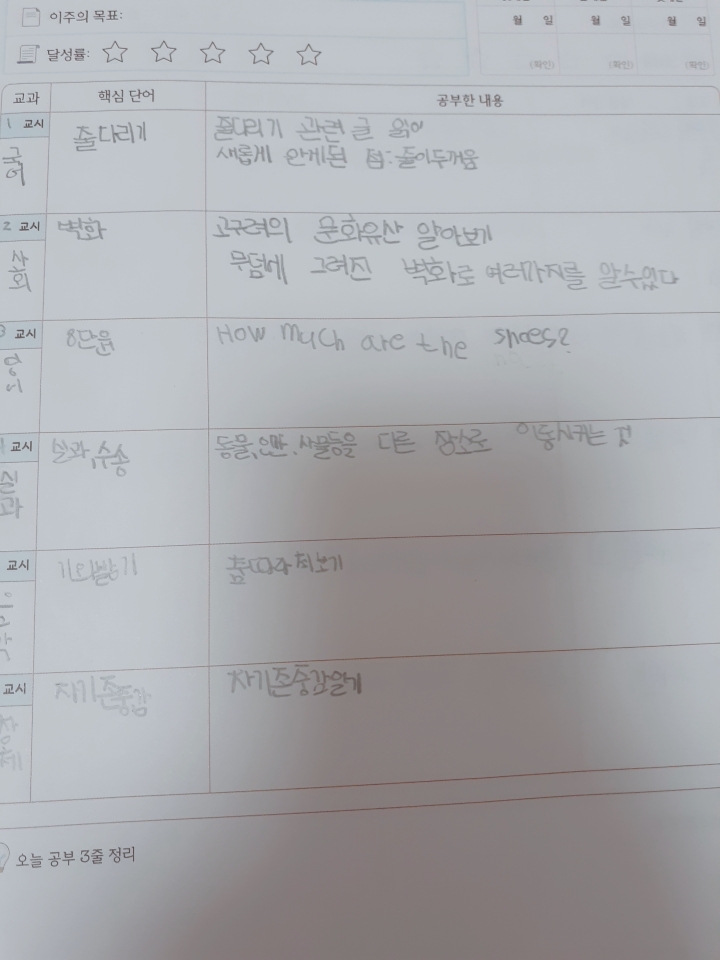 이주의 목표:
월 일 월 일 월 일
달성률:
(확인) (확인) (확인)
교과 핵심 단어 공부한 내용
1 교시 줄다리기 줄다리기 관련 글 읽어
국어 새롭게 안게된 점: 줄이두꺼움
2 교시 벽화 고구려의 문화유산 알아보기
사회 무덤에 그려진 벽화로 여러가지를 알수있다
3 교시 8단원 How much are the shoes?
영어
교시 실과,수송 동물, 사물등을 다른 장소로 이동시키는 것
실과
교시 춤따라쳐보기
음악
교시 자기존중감 자기존중감알기
창체
오늘 공부 3줄 정리